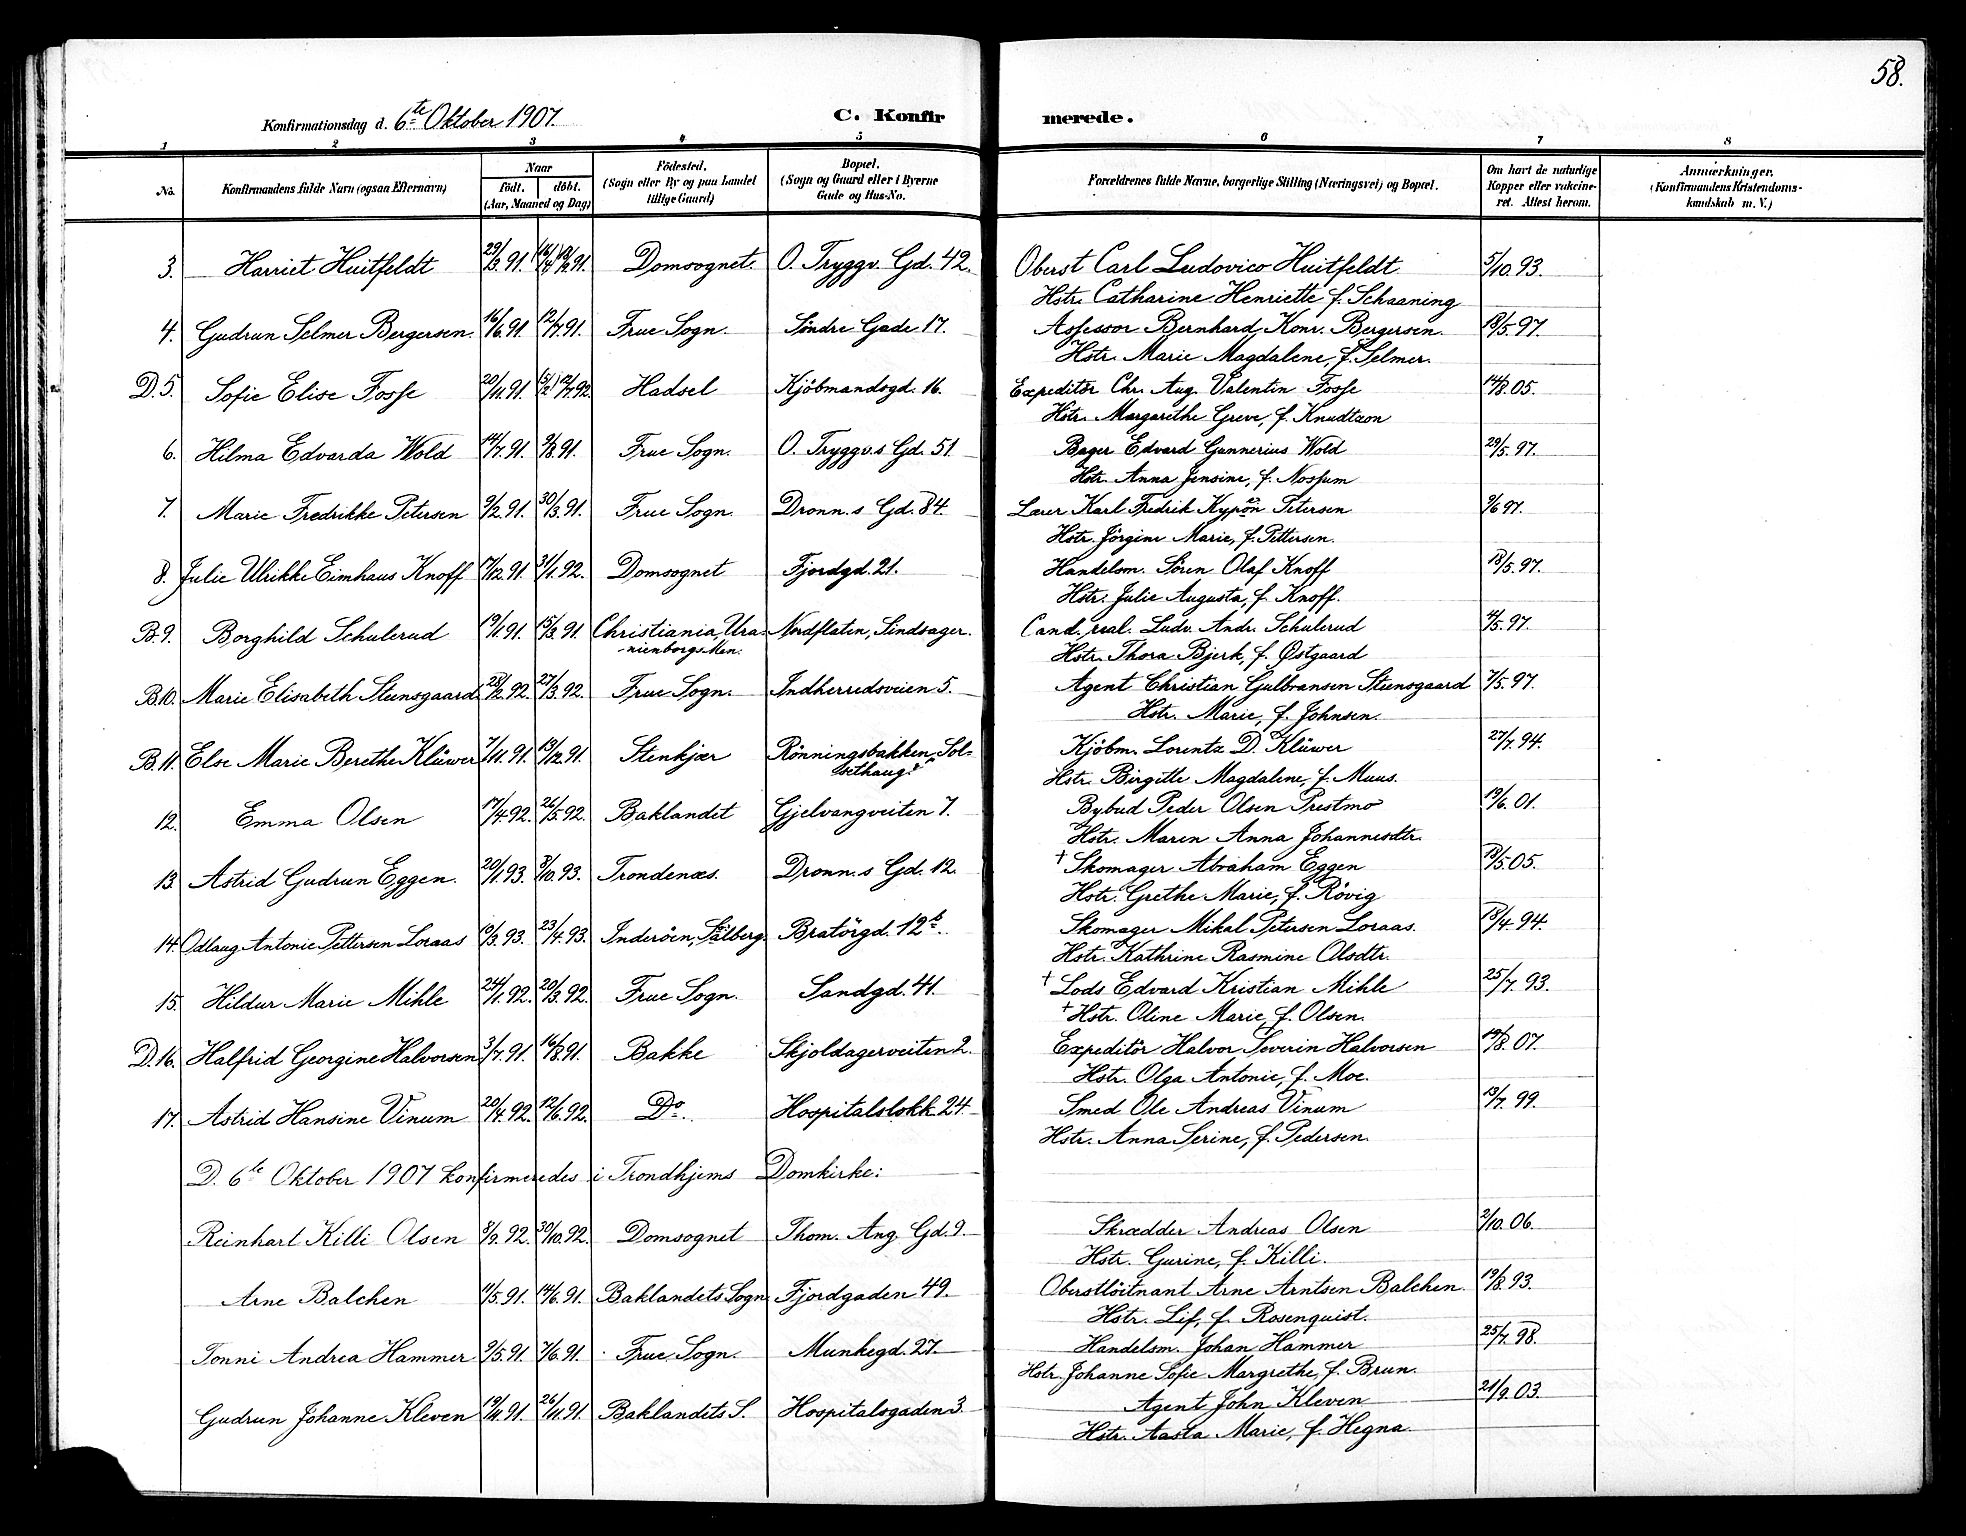 58.
Konfirmationsdag d. 6te Oktober 1907.
C. Konfirmerede.
1 2 3 4 5 6 7 8
No. Konfirmandens fulde Navn (ogsaa Efternavn) Naar født. døbt. (Aar, Maaned og Dag) Födested. (Sogn eller By og paa Landet tillige Gaard) Bopæl. (Sogn og Gaard eller i Byerne Gade og Hus-No. Forældrenes fulde Navne, borgerlige Stilling (Næringsvei) og Bopæl. Om havt de naturlige Kopper eller vakcineret. Attest herom. Anmærkninger. (Konfirmandens Kristendomskundskab m. V.)
3. Harriet Huitfeldt 29/3.91. Domsognet. O. Tryggv. Gd. 42. Oberst Carl Ludovico Huitfeldt 5/10.93.
Hstr. Catharine Henriette f. Schaaning
4. Gudrun Selmer Bergersen. 16/6.91. 12/7.91. Frue Sogn. Söndre Gade 17. Assessor Bernhard Konr. Bergersen. 18/5.97.
Hstr. Marie Magdalene, f. Selmer.
D.5. Sofie Elise Fosse 20/11.91. Hadsel Kjöbmandsgd. 16. Expeditör Chr. Aug. Valentin Fosse 14/8.05.
Hstr. Margarethe Greve, f. Knudtzon
6. Hilma Edvarda Wold 14/7.91. 9/8.91. Frue Sogn. O. Tryggv.s Gd. 51. Bager Edvard Gunnerius Wold 29/5.97.
Hstr. Anna Jensine, f. Nossum
7. Marie Fredrikke Petersen 9/2.91. 30/3.91. Frue Sogn. Dronn.s Gd. 84. Lærer Karl Fredrik Petersen 9/6 97.
Hstr. Jörgine Marie, f. Pettersen.
8. Julie Ulrikke Eimhaus Knoff 7/12.91. 31/1.92. Domsognet Fjordgd. 21. Handelsm. Sören Olaf Knoff 18/5.97.
Hstr. Julie Augusta, f. Knoff.
B.9. Borghild Schulerud 19/1.91. 15/3.91. Christiania, Ura- Nordflaten, Sindsager. Cand. real. Ludv. Andr. Schulerud 4/5.97.
nienborgs Men. Hstr. Thora Bjerk, f. Østgaard
B.10. Marie Elisabeth Steensgaard 28/2.92. 27/3.92. Frue Sogn. Indherredsveien 5. Agent Christian Gulbransen Steensgaard 7/5.97.
Hstr. Marie, f. Johnsen.
B.11. Else Marie Berethe Klüwer 7/11.91. 13/12.91. Stenkjær Rönningsbakken, Sol- Kjöbm. Lorentz D. Klüwer 27/7.94.
sethaug. Hstr. Birgitte Magdalene, f. Muus.
12. Emma Olsen 17/4.92. 26/5.92. Baklandet Gjelvangveiten 7. Bybud Peder Olsen Prestmo 19/6.01.
Hstr. Maren Anna Johannesdtr.
13. Astrid Gudrun Eggen. 20/1.93. 3/10.93. Trondenæs. Dronn.s Gd. 12. † Skomager Abraham Eggen 18/5.05.
Hstr. Grethe Marie, f. Rövig
14. Odlaug Antonie Pettersen Loraas 10/3.93. 23/4.93. Inderöen, Salberg. Bratörgd. 12b. Skomager Mikal Petersen Loraas. 18/4.94.
Hstr. Kathrine Rasmine Olsdtr.
15. Hildur Marie Mihle 24/1.92. 20/3.92. Frue Sogn. Sandgd. 41. † Lods Edvard Kristian Mihle 25/7.93.
† Hstr. Oline Marie, f. Olsen.
D.16. Halfrid Georgine Halvorsen 3/7.91. 16/8.91. Bakke Skjoldagerveiten 2. Expeditör Halvor Severin Halvorsen 19/8.07.
Hstr. Olga Antonie, f. Moe.
17. Astrid Hansine Vinum 20/4.92. 12/6.92. Do. Hospitalslökk. 24. Smed Ole Andreas Vinum 13/7.99.
Hstr. Anna Serine, f. Pedersen.
D. 6te Oktober 1907 konfirmeredes i Trondhjems Domkirke:
Reinhart Killi Olsen 8/9.92. 30/10.92. Domsognet Thom. Ang. Gd. 9. Skrædder Andreas Olsen 2/10.06.
Hstr. Gurine, f. Killi.
Arne Balchen 11/5.91. 14/6.91. Baklandets Sogn Fjordgaden 49. Oberstlöitnant Arne Arntsen Balchen. 19/8.93.
Hstr. Lif, f. Rosenquist.
Tonni Andrea Hammer 9/5.91. 7/6.91. Frue Sogn. Munkegd. 27. Handelsm. Johan Hammer 25/7.98.
Hstr. Johanne Sofie Margrethe, f. Brun.
Gudrun Johanne Kleven 19/4.91. 26/11.91. Baklandets S. Hospitalsgaden 3. Agent John Kleven 21/9.03.
Hstr. Aasta Marie, f. Hegna.